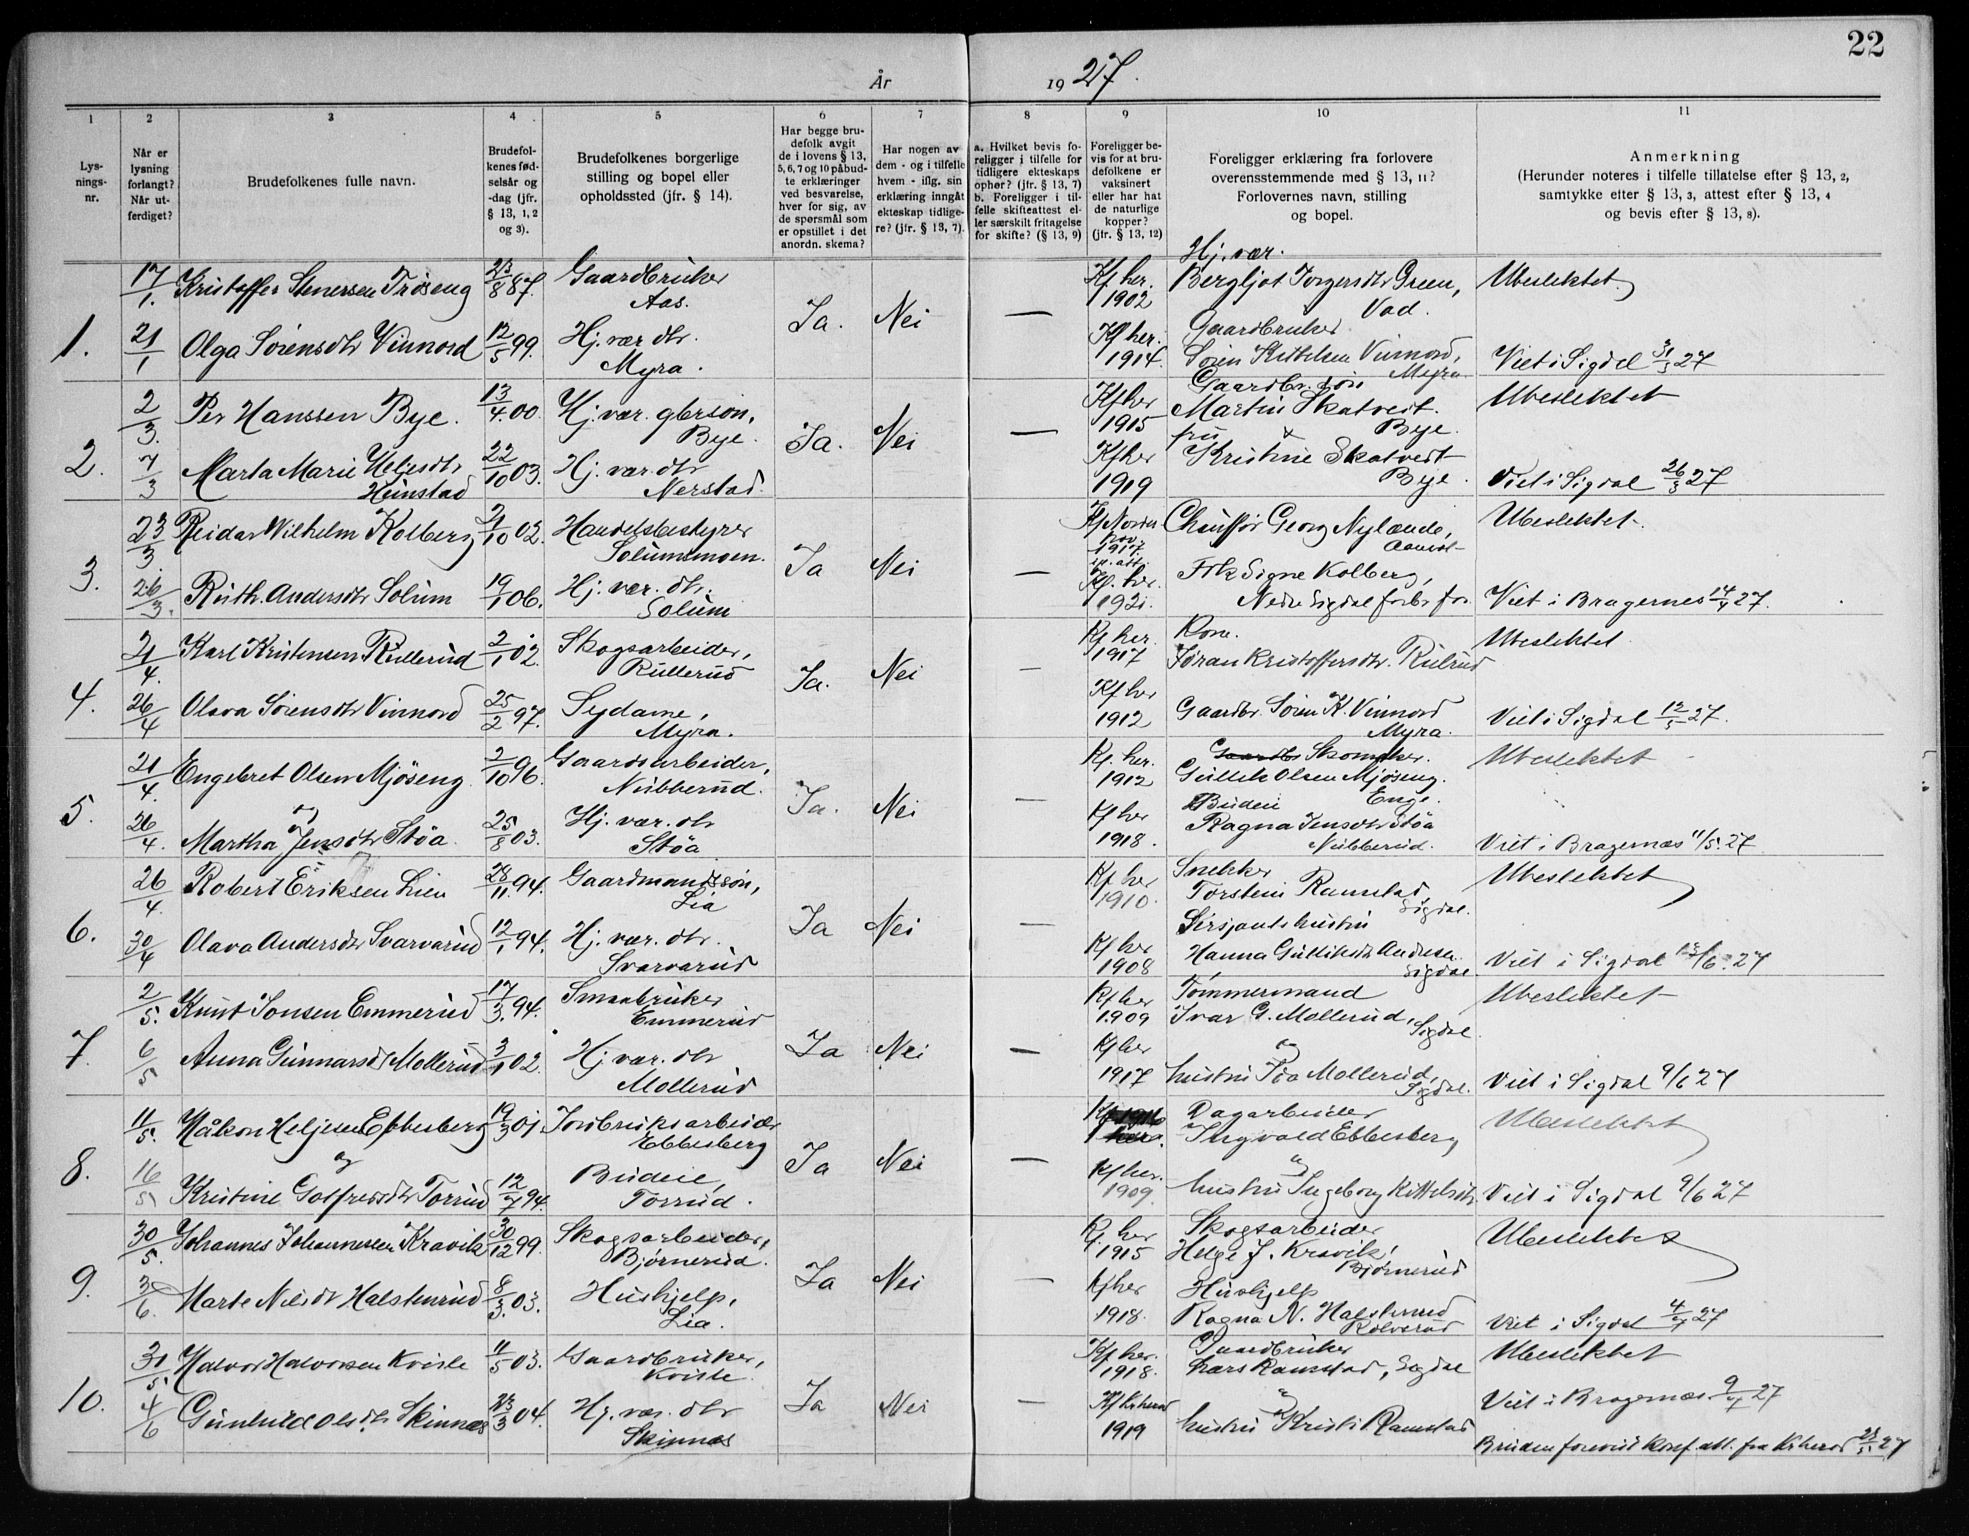 22
År 1927.
1 2 3 4 5 6 7 8 9 10 11
Lys-
nings-
nr.
Når er
lysning
forlangt?
Når ut-
ferdiget?
Brudefolkenes fulle navn.
Brudefol-
kenes fød-
selsår og
-dag (jfr.
§ 13, 1, 2
og 3).
Brudefolkenes borgerlige
stilling og bopel eller
opholdssted (jfr. § 14).
Har begge bru-
defolk avgit
de i lovens § 13,
5, 6, 7 og 10 påbud-
te erklæringer
ved besvarelse,
hver for sig, av
de spørsmål som
er opstillet i det
anordn. skema?
Har nogen av
dem - og i tilfelle
hvem - iflg. sin
erklæring inngåt
ekteskap tidlige-
re? (jfr. § 13, 7).
a. Hvilket bevis fo-
religger i tilfelle for
tidligere ekteskaps
ophør? (jfr. § 13, 7)
b. Foreligger i til-
felle skifteattest el-
ler særskilt fritagelse
for skifte? (§ 13, 9)
Foreligger be-
vis for at bru-
defolkene er
vaksinert
eller har hat
de naturlige
kopper?
(jfr. § 13, 12)
Foreligger erklæring fra forlovere
overensstemmende med § 13, 11?
Forlovernes navn, stilling
og bopel.
Anmerkning
(Herunder noteres i tilfelle tillatelse efter § 13, 2,
samtykke etter § 13, 3, attest efter § 13, 4
og bevis efter § 13, 8).
Hj. vær.
17/1. Kristoffer Stenersen Trøseng 23/8 87. Gaardbruker Kf her. Bergljot Torgersdtr Green, Ubeslektet
Aas. 1902 Vad.
1. Ja. Nei —
21/1 Olga Sørensdtr Vinnord 12/5 99. Hj. vær dtr. Kf her. Gaardbruker
Myra. 1914. Søren Kittelsen Vinnord, Viet i Sigdal 31/3 27
Myra.
2/3. Per Hanssen Bye. 13/4. 00. Hj. vær. gbrsøn, Kf her Gaardbr. søn Ubeslektet
Bye. 1915 Martin Skatvedt. Bye.
2. Ja. Nei —
7/3 Marta Marie Heljesdtr 22/10 03. Hj. vær. dtr Kf her fru Kristine Skatvedt
Heimstad Nerstad. 1919 Bye. Viet i Sigdal 26/3 27
23/3 Reidar Wilhelm Kolberg 02. Handelsbestyrer Chauffør Georg Nylænde, Ubeslektet.
Solummoen. 1917.
3. Ja Nei —
26/3. Ruth Andersdtr Solum 19/1 06. Hj. vær. dtr. Kf. her. Frk Signe Kolberg,
Solum 1921. Nedre Sigdal forbr.for. Viet i Bragernes 14/4 27.
21/4. Karl Kristensen Rullerud 2/1 02. Skogsarbeider, Kf her. Kone. Ubeslektet.
Rullerud 1917 Jøran Kristoffersdtr. Rulrud
4. Ja. Nei —
26/4 Olava Sørensdtr Vinnord 25/2 97. Sydame, Kf her Gaardbr. Søren K. Vinnord
Myra. 1912 Myra. Viet i Sigdal 12/5 27.
21/4. Engebret Olsen Mjøseng 2/10 96. Gaardsarbeider, Kf. her. Skomaker. Ubeslektet
Nubberud. 1912 Gullik Olsen Mjøseng. Enge.
5. og Ja. Nei —
26/4. Martha Jensdtr Støa. 25/8 03. Hj. vær. dtr Kf her Budeie Ragna Jensdtr Støa
Støa 1918. Nubberud. Viet i Bragernæs 11/5. 27
26/4. Robert Eriksen Lien 28/11. 94. Gaardmandssøn, Kf her Snekker Ubeslektet
Lia 1910. Torstein Ramstad, Sigdal.
6. Ja Nei —
30/4 Olava Andersdtr Svarvarud 12/1 94. Hj. vær. dtr. Kf her Sersjantshustru
Svarvarud 1908 Hanna Gulliksdtr Andersen. Sigdal Viet i Sigdal /6. 27
2/5. Knut Jonsen Emmerud 17/3. 94. Smaabruker Kf her Tømmermand Ubeslektet
Emmerud 1909 Ivar G. Mollerud, Sigdal.
7. Ja Nei —
6/5 Anna Gunnarsdt Mollerud 3/1 02. Hj. vær. dtr Kf her og
Mollerud 1917 hustru Mollerud, Sigdal. Viet i Sigdal 9/6 27
11/5. Håkon Heljesen Ebbesberg 19/3 01. Jordbruksarbeider Dagarbeider Ubeslektet
Ebbesberg Ingvald Ebbesberg
8. og Ja Nei —
16/5 Kristine Gotfredsdtr Torrud 12/7 94. Budeie, Kf her. og
Torrud. 1909. hustru Ingeborg Kittelsdtr. Viet i Sigdal 9/6 27
30/5. Johannes Johannessen Kravik 30/12 99. Skogsarbeider, Kf. her Skogsarbeider Ubeslektet
Bjørnerud. 1915 Helge J. Kravik, Bjørnerud
9. Ja Nei —
3/6. Marte Nilsdt Halstenrud 8/3. 03. Hushjelp, Kf her Hushjelp
Lia. 1918. Ragna N. Halstenrud Viet i Sigdal 4/7 27
31/5. Halvor Halvorsen Kvisle 11/5 03. Gaardbruker, Kf her. Gaardbruker Ubeslektet
Kvisle. 1918. Lars Ramstad, Sigdal
10. Ja Nei
4/6 Gunhild Olsdtr Skinnæs 23/3 04. Hj. vær. dtr Kf Krherad og Viet i Bragernæs 9/7 27
Skinnæs 1919 hustru Kristi Ramstad
Bruden forevist konf. att. fra Krherad 27